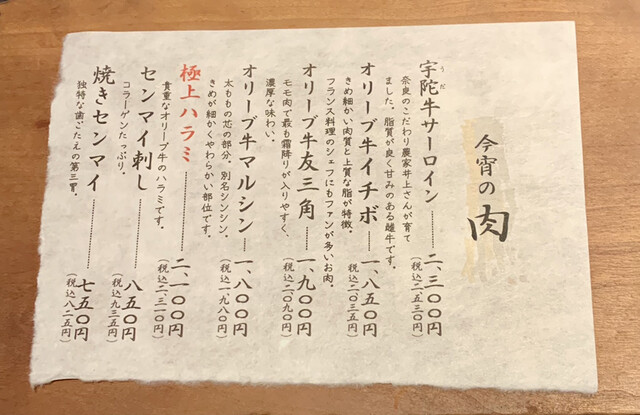 今宵の肉
うだ
宇陀牛サーロイン……二、三〇〇円
（税込二五三〇円）
奈良のこだわり農家井上さんが育て
ました。脂質が良く甘みのある雌牛です。
オリーブ牛イチボ……一、八五〇円
きめ細かい肉質と上質な脂が特徴。
フランス料理のシェフにもファンが多いお肉。
オリーブ牛友三角……一、九〇〇円
（税込二〇九〇円）
モモ肉で最も霜降りが入りやすく、
濃厚な味わい。
オリーブ牛マルシン……一、八〇〇円
（税込一、九八〇円）
太ももの芯の部分。別名シンシン。
きめが細かくやわらかい部位です。
極上ハラミ……二、一〇〇円
（税込二、三一〇円）
貴重なオリーブ牛のハラミです。
センマイ刺し……八五〇円
（税込九三五円）
コラーゲンたっぷり。
焼きセンマイ……七五〇円
（税込八二五円）
独特な歯ごたえの第三胃。